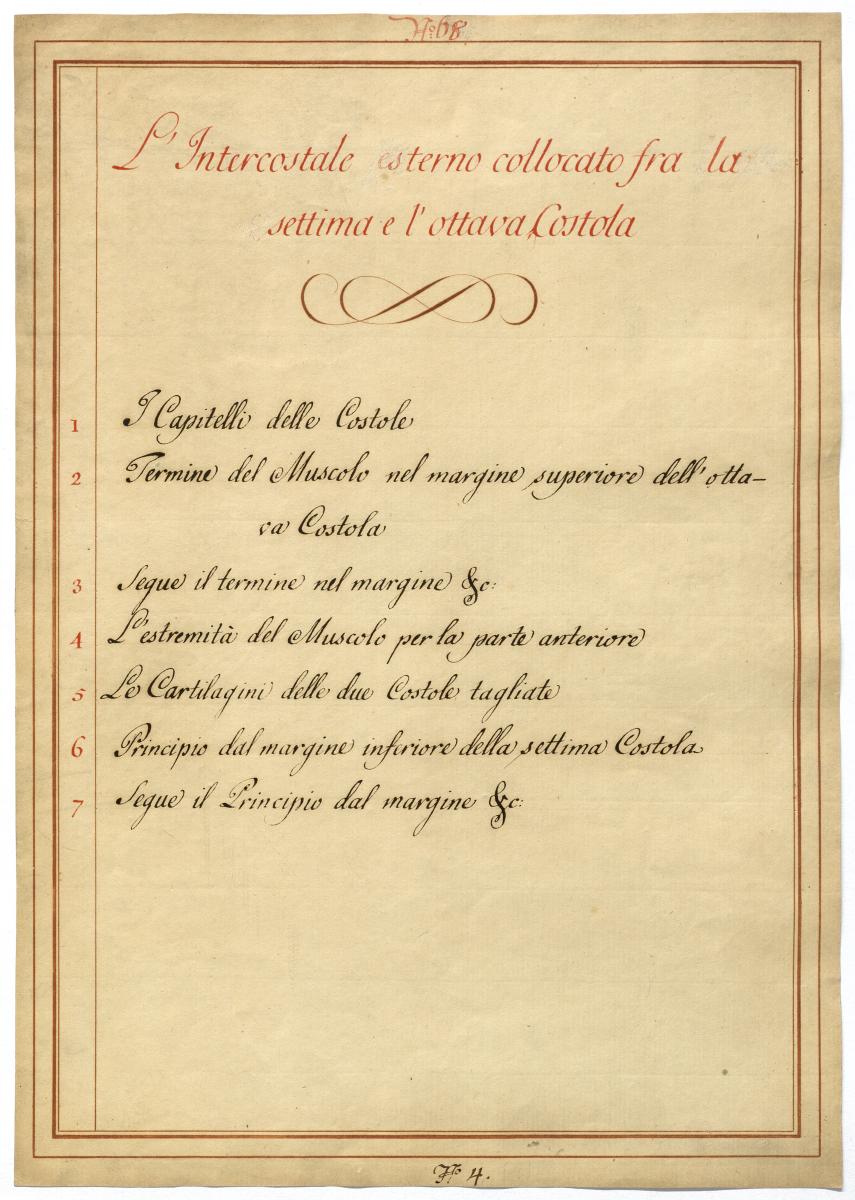 Nº 68
L' Intercostale esterno collocato fra la
settima e l' ottava Costola
1 I Capitelli delle Costole
2 Termine del Muscolo nel margine superiore dell' otta-
va Costola
3 Segue il termine nel margine &c:
4 L'estremità del Muscolo per la parte anteriore
5 Le Cartilagini delle due Costole tagliate
6 Principio dal margine inferiore della settima Costola
7 Segue il Principio dal margine &c:
Nº 4.